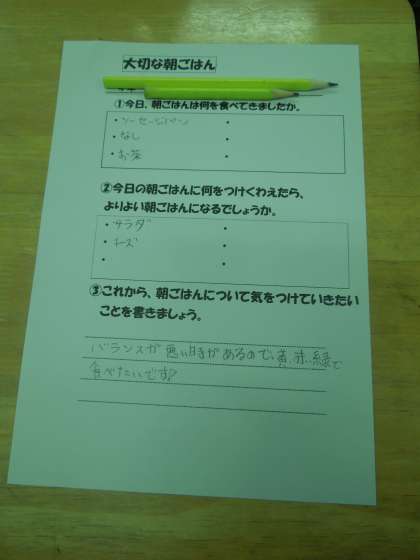 大切な朝ごはん
①今日、朝ごはんは何を食べてきましたか。
・ソーセージパン ・
・なし ・
・お茶 ・
②今日の朝ごはんに何をつけくわえたら、
よりよい朝ごはんになるでしょうか。
・サラダ ・
・チーズ ・
・ ・
③これから、朝ごはんについて気をつけていきたい
ことを書きましょう。
バランスが悪い時があるので、黄、赤、緑で
食べたいです。